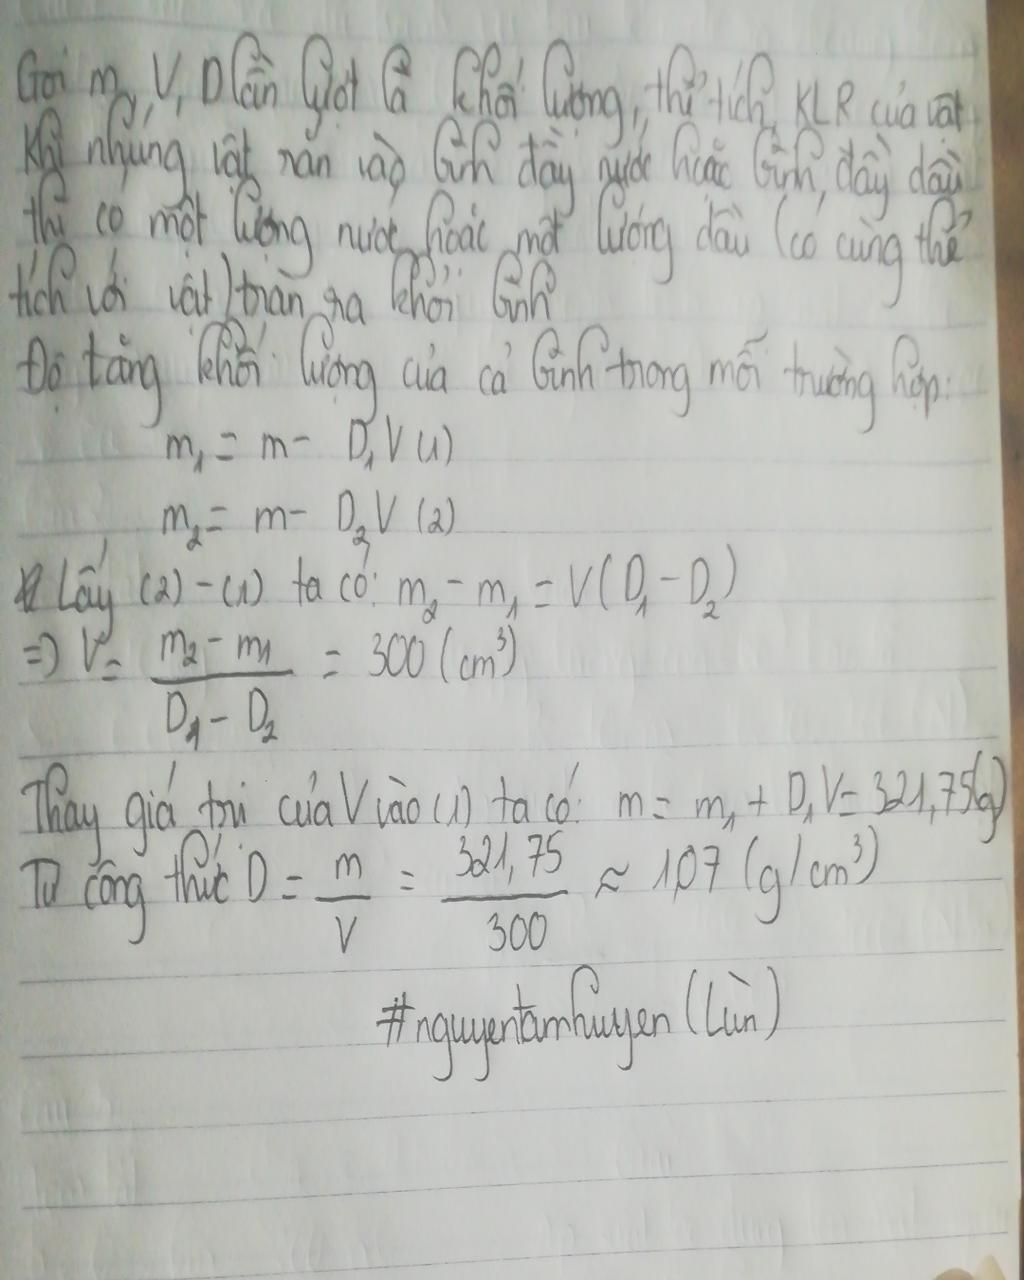 Gọi m, V, D lần lượt là khối lượng, thể tích, KLR của vật.
Khi nhúng vật rắn vào bình đầy nước hoặc bình đầy dầu
thì có một lượng nước hoặc một lượng dầu (có cùng thể
tích với vật) tràn ra khỏi bình
Độ tăng khối lượng của cả bình trong mỗi trường hợp:
m₁ = m - D₁V (1)
m₂ = m - D₂V (2)
Lấy (2) - (1) ta có: m₂ - m₁ = V(D₁ - D₂)
=> V = (m₂ - m₁)/(D₁ - D₂) = 300 (cm³)
Thay giá trị của V vào (1) ta có: m = m₁ + D₁V = 321,75(g)
Từ công thức D = m/V = 321,75/300 ≈ 1,07 (g/cm³)
#nguyentamhuyen (Lùn)